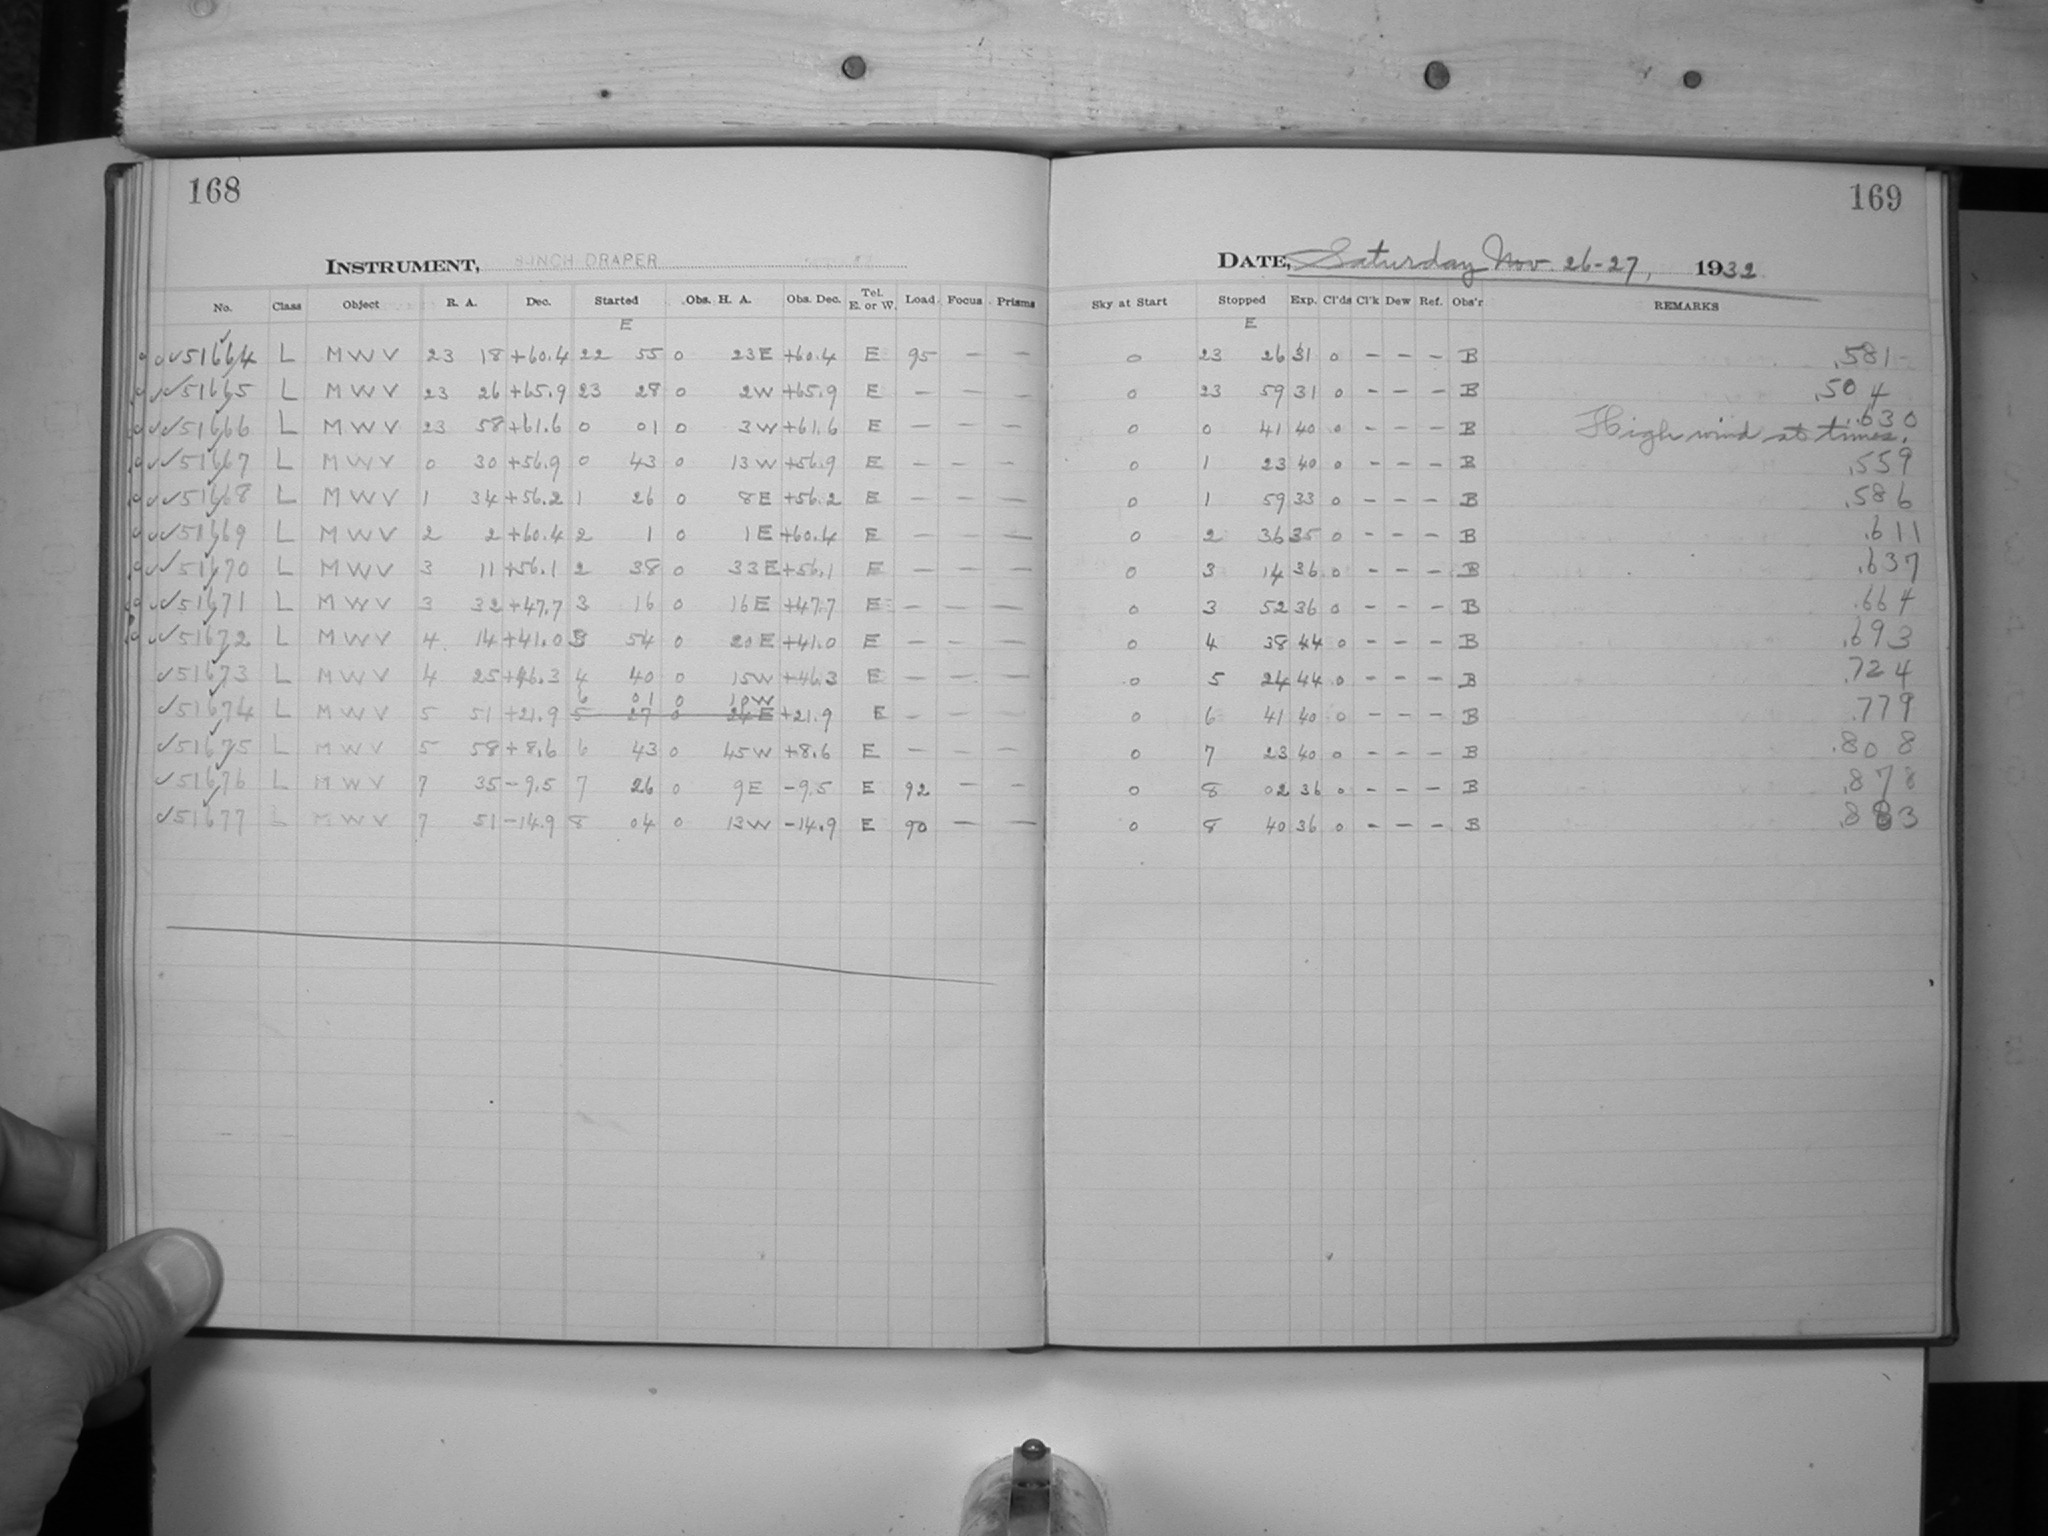 168
169
INSTRUMENT, 8-INCH DRAPER
DATE, Saturday Nov. 26-27, 1932
No. Class Object R. A. Dec. Started Obs. H. A. Obs. Dec. Tel. E. or W. Load Focus Prisms Sky at Start Stopped Exp. Cl'ds Cl'k Dew Ref. Obs'r REMARKS
E E
51664 L M W V 23 18 +60.4 22 55 0 23E +60.4 E 95 – – 0 23 26 31 0 – – – B .581
51665 L M W V 23 26 +65.9 23 28 0 2W +65.9 E – – – 0 23 59 31 0 – – – B .504
51666 L M W V 23 58 +61.6 0 01 0 3W +61.6 E – – – 0 0 41 40 0 – – – B High wind at times. .630
51667 L M W V 0 30 +56.9 0 43 0 13W +56.9 E – – – 0 1 23 40 0 – – – B .559
51668 L M W V 1 34 +56.2 1 26 0 8E +56.2 E – – – 0 1 59 33 0 – – – B .586
51669 L M W V 2 2 +60.4 2 1 0 1E +60.4 E – – – 0 2 36 35 0 – – – B .611
51670 L M W V 3 11 +56.1 2 38 0 33E +56.1 E – – – 0 3 14 36 0 – – – B .637
51671 L M W V 3 32 +47.7 3 16 0 16E +47.7 E – – – 0 3 52 36 0 – – – B .664
51672 L M W V 4 14 +41.0 3 54 0 20E +41.0 E – – – 0 4 38 44 0 – – – B .693
51673 L M W V 4 25 +46.3 4 40 0 15W +46.3 E – – – 0 5 24 44 0 – – – B .724
6 01 0 10W
51674 L M W V 5 51 +21.9 5 27 0 24E +21.9 E – – – 0 6 41 40 0 – – – B .779
51675 L M W V 5 58 +8.6 6 43 0 45W +8.6 E – – – 0 7 23 40 0 – – – B .808
51676 L M W V 7 35 -9.5 7 26 0 9E -9.5 E 92 – – 0 8 02 36 0 – – – B .878
51677 L M W V 7 51 -14.9 8 04 0 13W -14.9 E 90 – – 0 8 40 36 0 – – – B .883